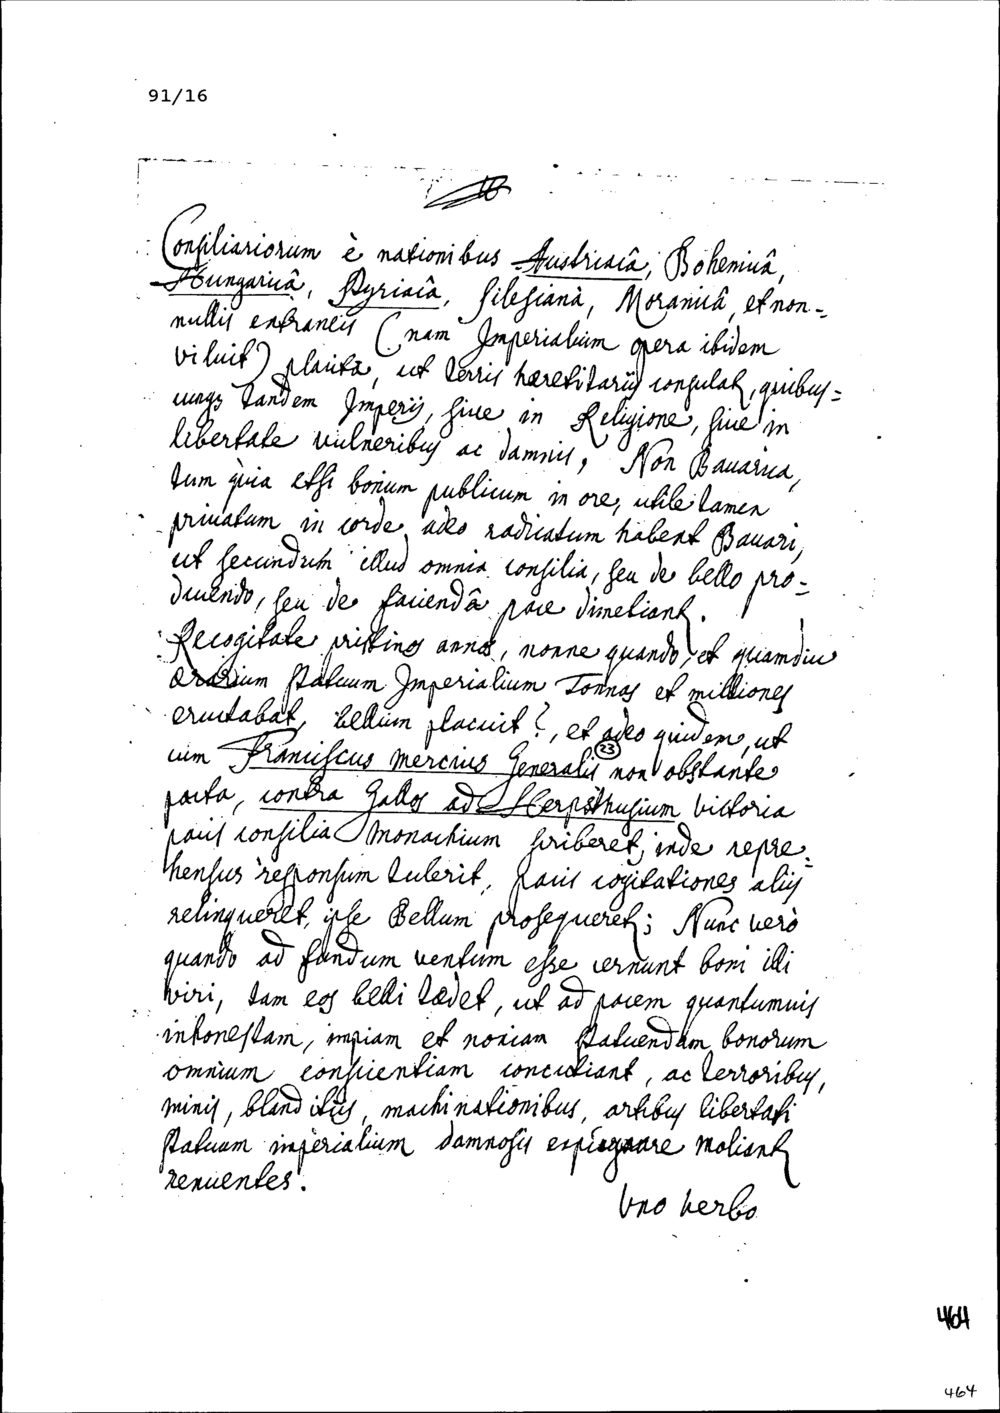 91/16
Consiliariorum è nationibus Austriacâ, Bohemicâ,
Hungaricâ, Styriacâ, Silesianâ, Moravicâ, et non=
nullis extraneis (nam Imperialium opera ibidem
viluit) placita, ut terris hæreditarijs consulat, quibus=
cunqs tandem Imperij, siue in Religione, siue in
libertate vulneribus ac damnis, Non Bauarica,
tum quia etsi bonum publicum in ore, utile tamen
priuatum in corde adeo radicatum habent Bauari,
ut secundum illud omnia consilia, seu de bello pro=
ducendo, seu de faciendâ pace dimetiant.
Recogitate pristinos annos, nonne quando, et quamdiu
ærarium Statuum Imperialium Tonnas et milliones
eructabat, bellum placuit?, et adeo quidem, ut
cum Franciscus mercius Generalis non obstante
23
parta, contra Gallos ad Herpsthusium victoria
pacis consilia Monachium scriberet, inde repre=
hensus responsum tulerit, pacis cogitationes alijs
relinqueret, ipse Bellum prosequeret; Nunc verò
quando ad fundum ventum esse cernunt boni illi
viri, tam eos belli tædet, ut ad pacem quantumuis
inhonestam, impiam et noxiam statuendam bonorum
omnium conscientiam concutiant, ac terroribus,
minis, blanditijs, machinationibus, artibus libertati
statuum imperialium damnosis expugnare moliant
renuentes.
Uno verbo
464
464